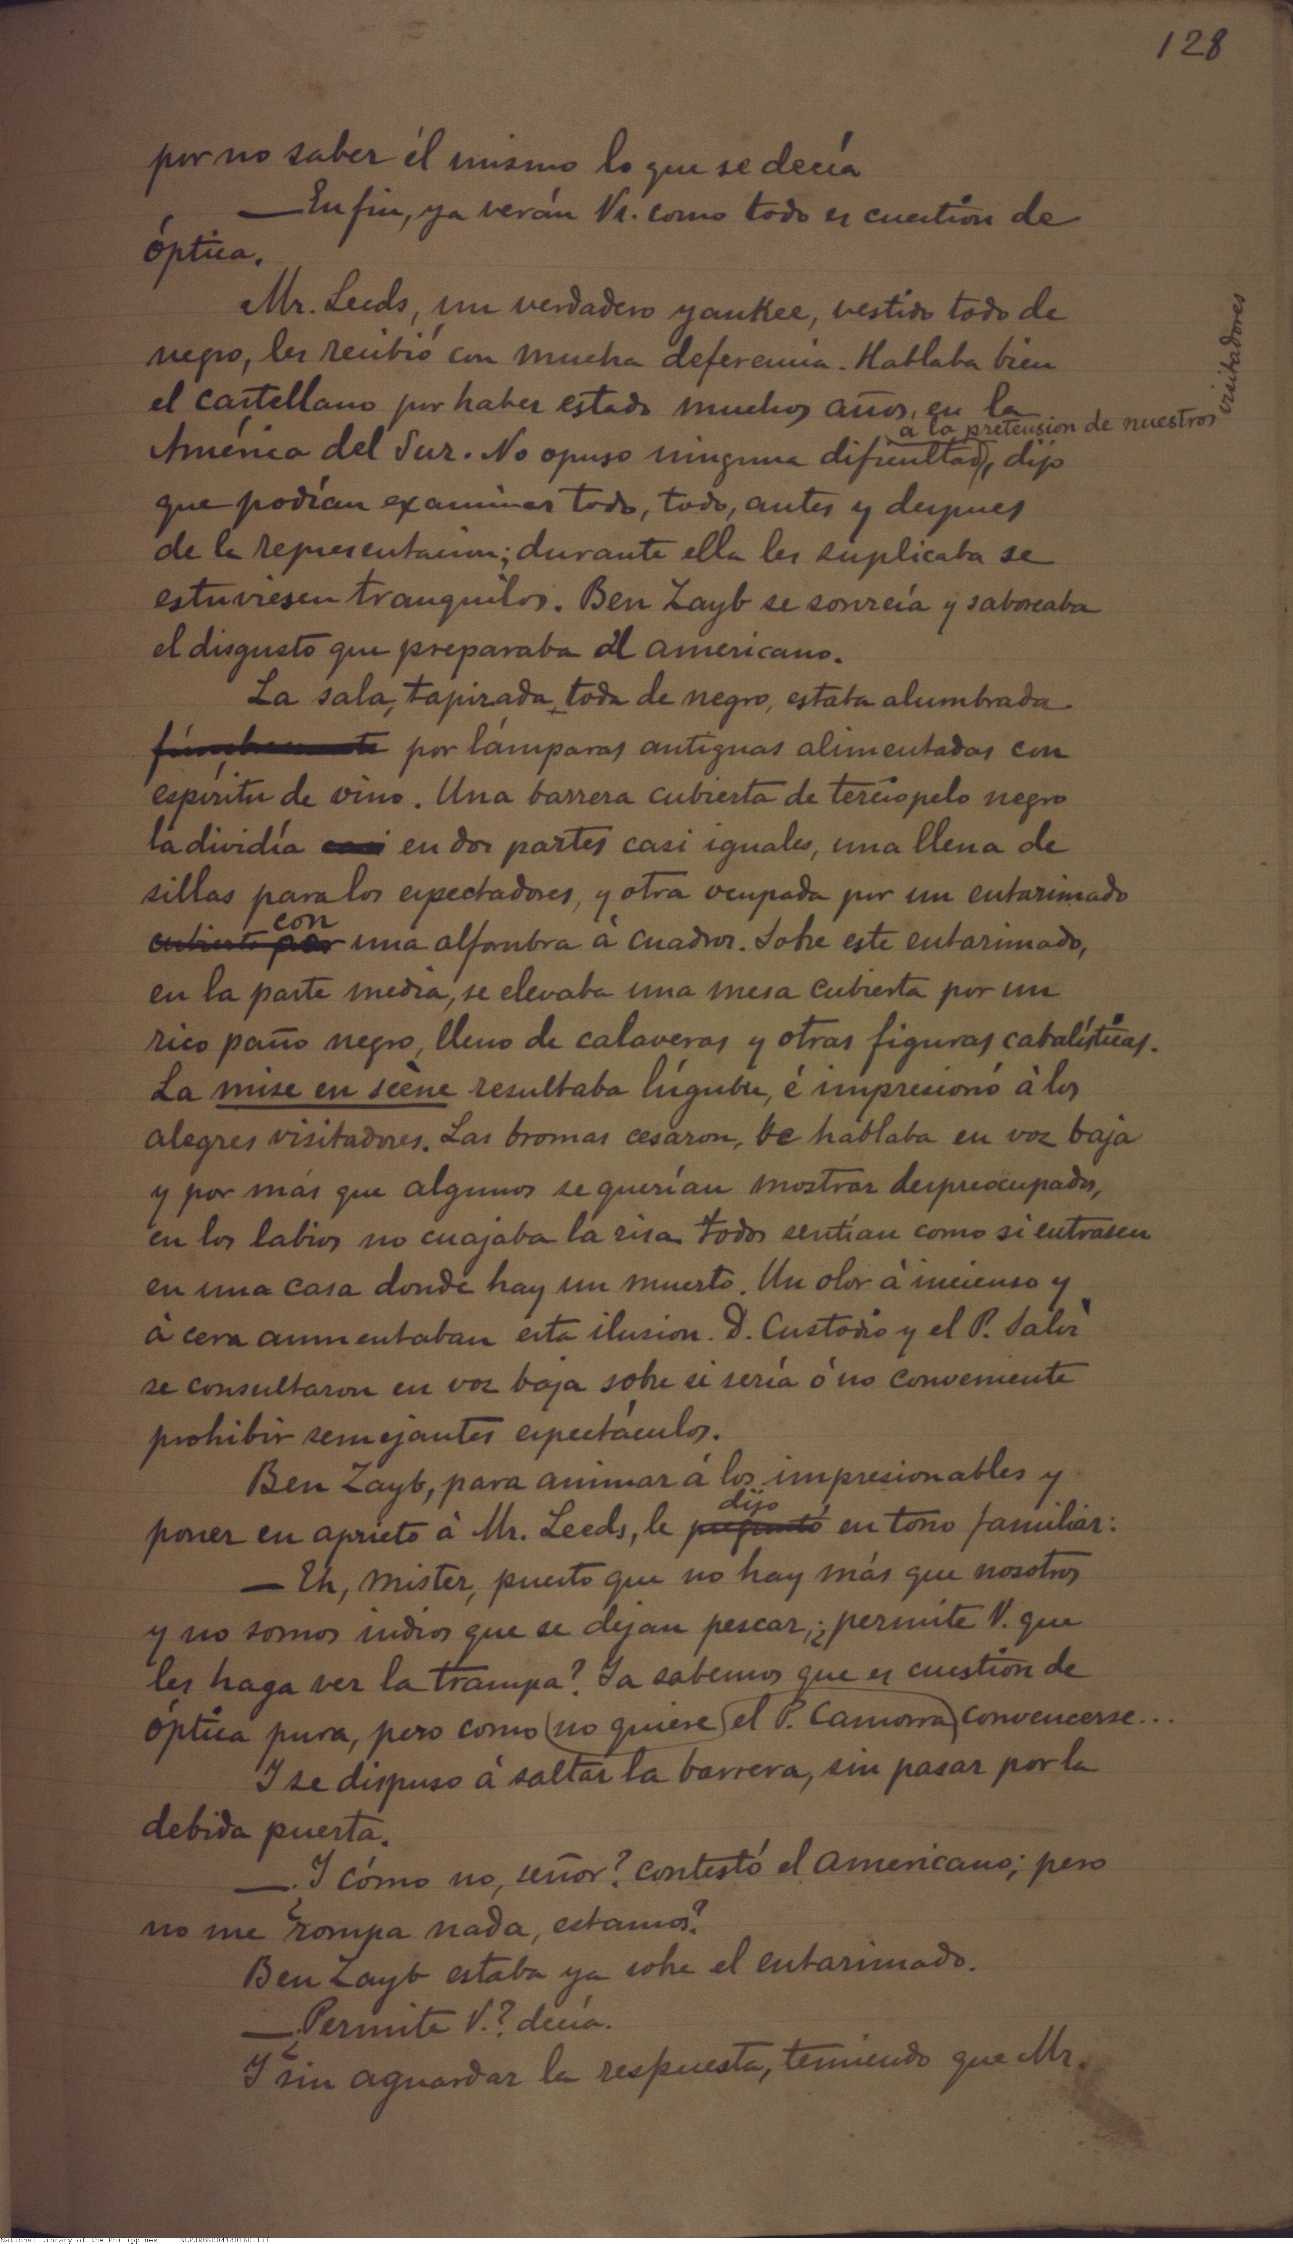 128
por no saber él mismo lo que se decía
—En fin, ya verán Vs. como todo es cuestion de
óptica.
Mr. Leeds, un verdadero yankee, vestido todo de
negro, les recibió con mucha deferencia. Hablaba bien
el castellano por haber estado muchos años, en la
a la pretension de nuestros visitadores
América del Sur. No opuso ninguna dificultad, dijo
que podían examinar todo, todo, antes y despues
de la representacion; durante ella les suplicaba se
estuviesen tranquilos. Ben Zayb se sonreía y saboreaba
el disgusto que preparaba al americano.
La sala, tapizada toda de negro, estaba alumbrada
fúnebremente por lámparas antiguas alimentadas con
espíritu de vino. Una barrera cubierta de terciopelo negro
la dividía casi en dos partes casi iguales, una llena de
sillas para los espectadores, y otra ocupada por un entarimado
con
cubierto por una alfombra à cuadros. Sobre este entarimado,
en la parte media, se elevaba una mesa cubierta por un
rico paño negro, lleno de calaveras y otras figuras cabalísticas.
La mise en scène resultaba lúgubre, é impresionó à los
alegres visitadores. Las bromas cesaron, se hablaba en voz baja
y por más que algunos se querían mostrar despreocupados,
en los labios no cuajaba la risa. Todos sentían como si entrasen
en una casa donde hay un muerto. Un olor à incienso y
à cera aumentaban esta ilusion. D. Custodio y el P. Salvì
se consultaron en voz baja sobre si sería ó no conveniente
prohibir semejantes espectáculos.
Ben Zayb, para animar á los impresionables y
dijo
poner en aprieto à Mr. Leeds, le preguntó en tono familiar:
—Eh, mister, puesto que no hay más que nosotros
y no somos indios que se dejan pescar, ¿permite V. que
les haga ver la trampa? Ya sabemos que es cuestion de
óptica pura, pero como no quiere el P. Camorra convencerse...
Y se dispuso à saltar la barrera, sin pasar por la
debida puerta.
—¿Y cómo no, señor? contestó el americano; pero
no me rompa nada, estamos?
Ben Zayb estaba ya sobre el entarimado.
—¿Permite V.? decía.
Y sin aguardar la respuesta, temiendo que Mr.